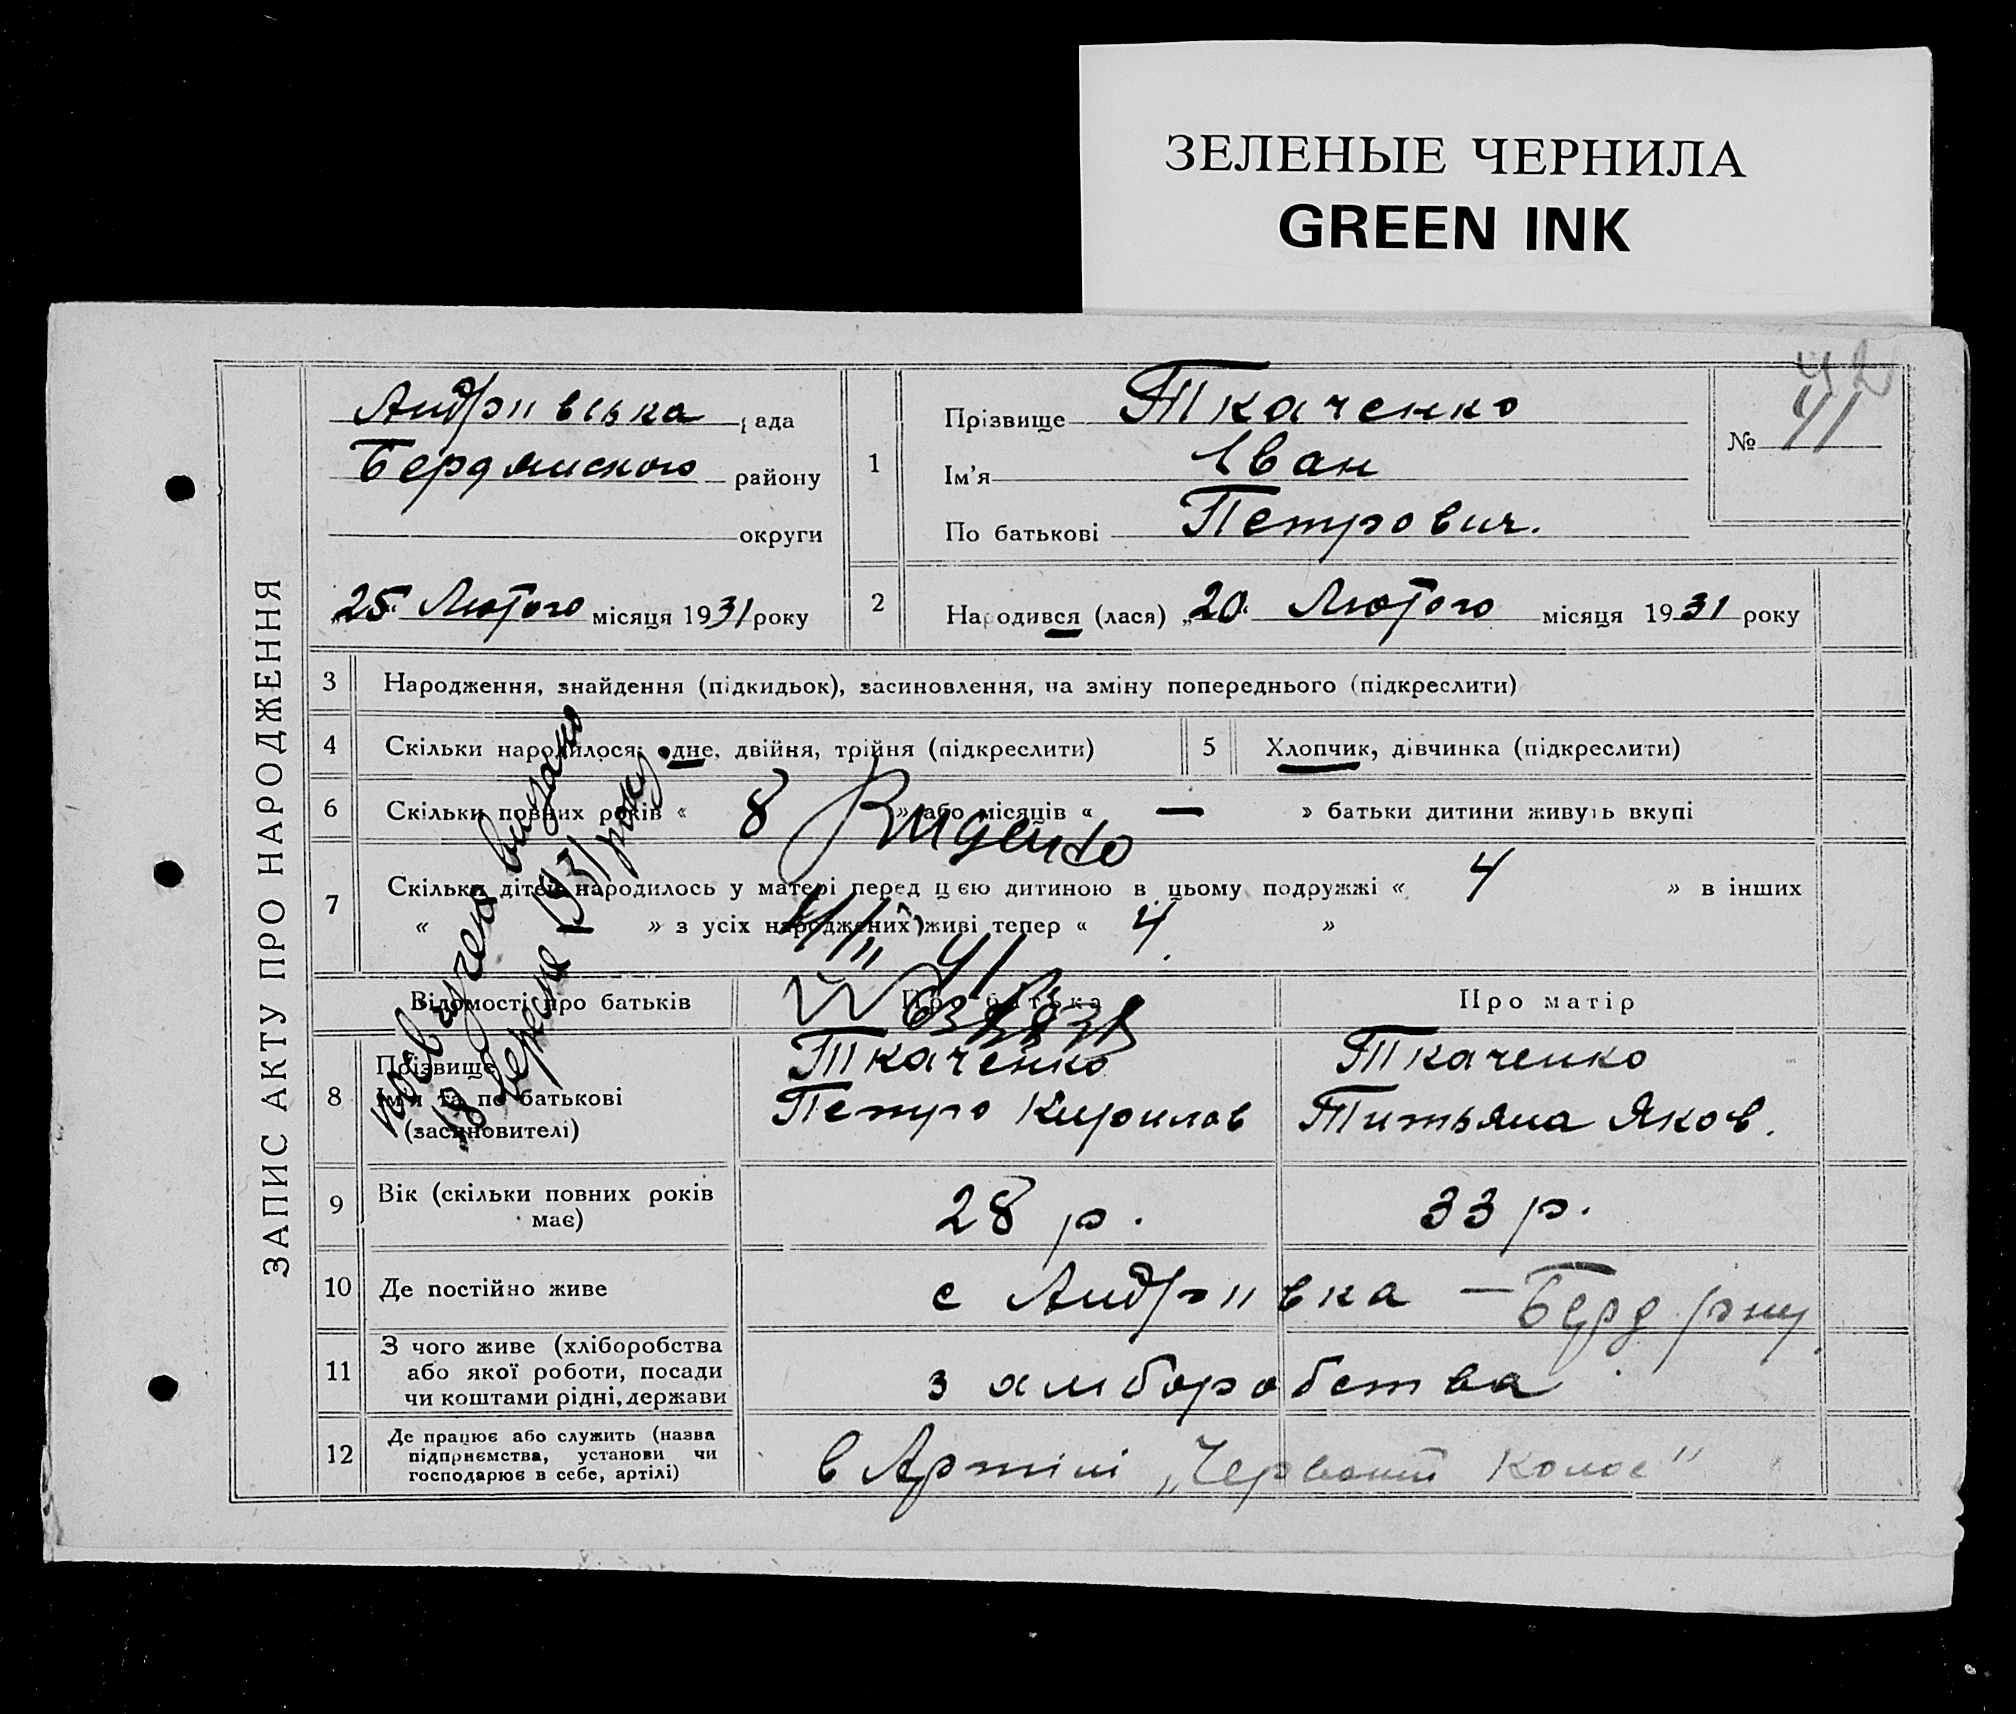 ЗЕЛЕНЫЕ ЧЕРНИЛА
GREEN INK
ЗАПИС АКТУ ПРО НАРОДЖЕННЯ
Андріївська рада
Бердянського району
округи
25 Лютого місяця 1931 року
1
Прізвище Ткаченко
Ім'я Іван
По батькові Петрович.
№ 41
42
2 Народився (лася) „20 Лютого місяця 1931 року
3 Народження, знайдення (підкидьок), засиновлення, на зміну попереднього (підкреслити)
4 Скільки народилося: одне, двійня, трійня (підкреслити)
5 Хлопчик, дівчинка (підкреслити)
6 Скільки повних років « 8 » або місяців « — » батьки дитини живуть вкупі
7 Скільки дітей народилось у матері перед цією дитиною в цьому подружжі « 4 » в інших
« — » з усіх народжених живі тепер « 4 »
видано
18 вересня 1931 року
Відомості про батьків
Про батька
Про матір
8 Прізвище
Ім'я та по батькові
(засиновителі)
Ткаченко
Петро Кирилов
Ткаченко
Титьяна Яков.
9 Вік (скільки повних років
має)
28 р.
33 р.
10 Де постійно живе
с Андріївка — Берд р-ну
11 З чого живе (хліборобства
або якої роботи, посади
чи коштами рідні, держави
з хліборобства
12 Де працює або служить (назва
підприємства, установи чи
господарює в себе, артілі)
в Артілі „Червоний Колос"